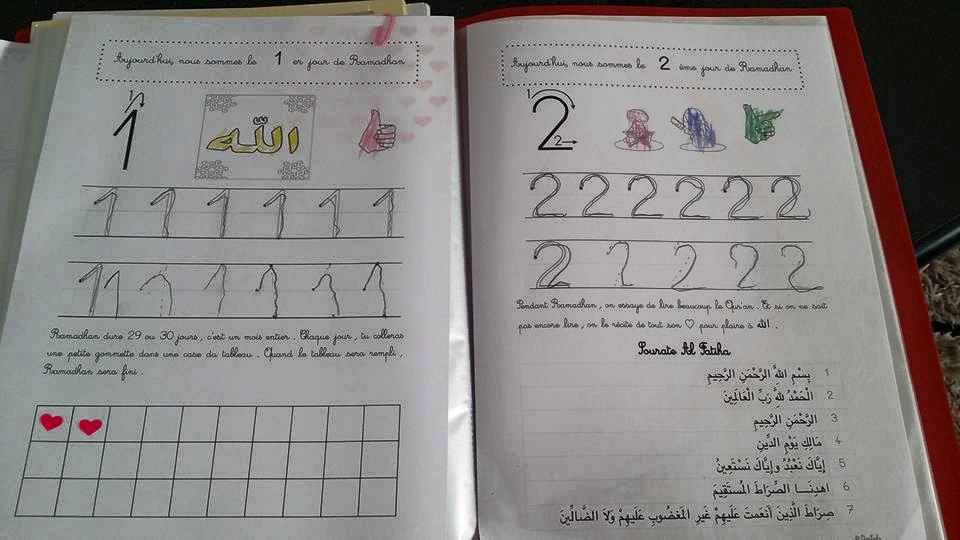 Aujourd'hui, nous sommes le 1 er jour de Ramadhan
1
1
الله
1 1 1 1 1 1
1 1 1 1 1 1 1
Ramadhan dure 29 ou 30 jours, c'est un mois entier. Chaque jour, tu colleras
une petite gommette dans une case du tableau. Quand le tableau sera rempli,
Ramadhan sera fini.
Aujourd'hui, nous sommes le 2 ème jour de Ramadhan
1
2
2
2 2 2 2 2 2
2 2 2 2 2
Pendant Ramadhan, on essaye de lire beaucoup le Qur'an. Et si on ne sait
pas encore lire, on le récite de tout son ♡ pour plaire à الله.
Sourate Al Fatiha
1 بِسْمِ اللَّهِ الرَّحْمَنِ الرَّحِيمِ
2 الْحَمْدُ لِلَّهِ رَبِّ الْعَالَمِينَ
3 الرَّحْمَنِ الرَّحِيمِ
4 مَالِكِ يَوْمِ الدِّينِ
5 إِيَّاكَ نَعْبُدُ وإِيَّاكَ نَسْتَعِينُ
6 اهدِنَــــا الصِّرَاطَ المُستَقِيمَ
7 صِرَاطَ الَّذِينَ أَنعَمتَ عَلَيهِمْ غَيرِ المَغضُوبِ عَلَيهِمْ وَلاَ الضَّالِّينَ